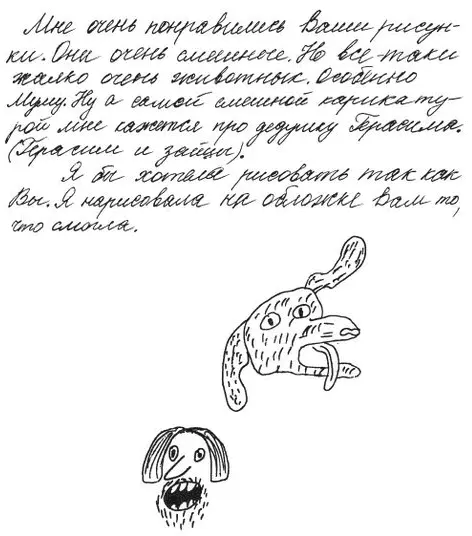 Мне очень понравились Ваши рисун-
ки. Они очень смешные. Но все-таки
жалко очень животных. Особенно
Муму. Ну а самой смешной карикату-
рой мне кажется про дедушку Герасима.
(Герасим и зайцы).
Я бы хотела рисовать так как
Вы. Я нарисовала на обложке Вам то,
что смогла.